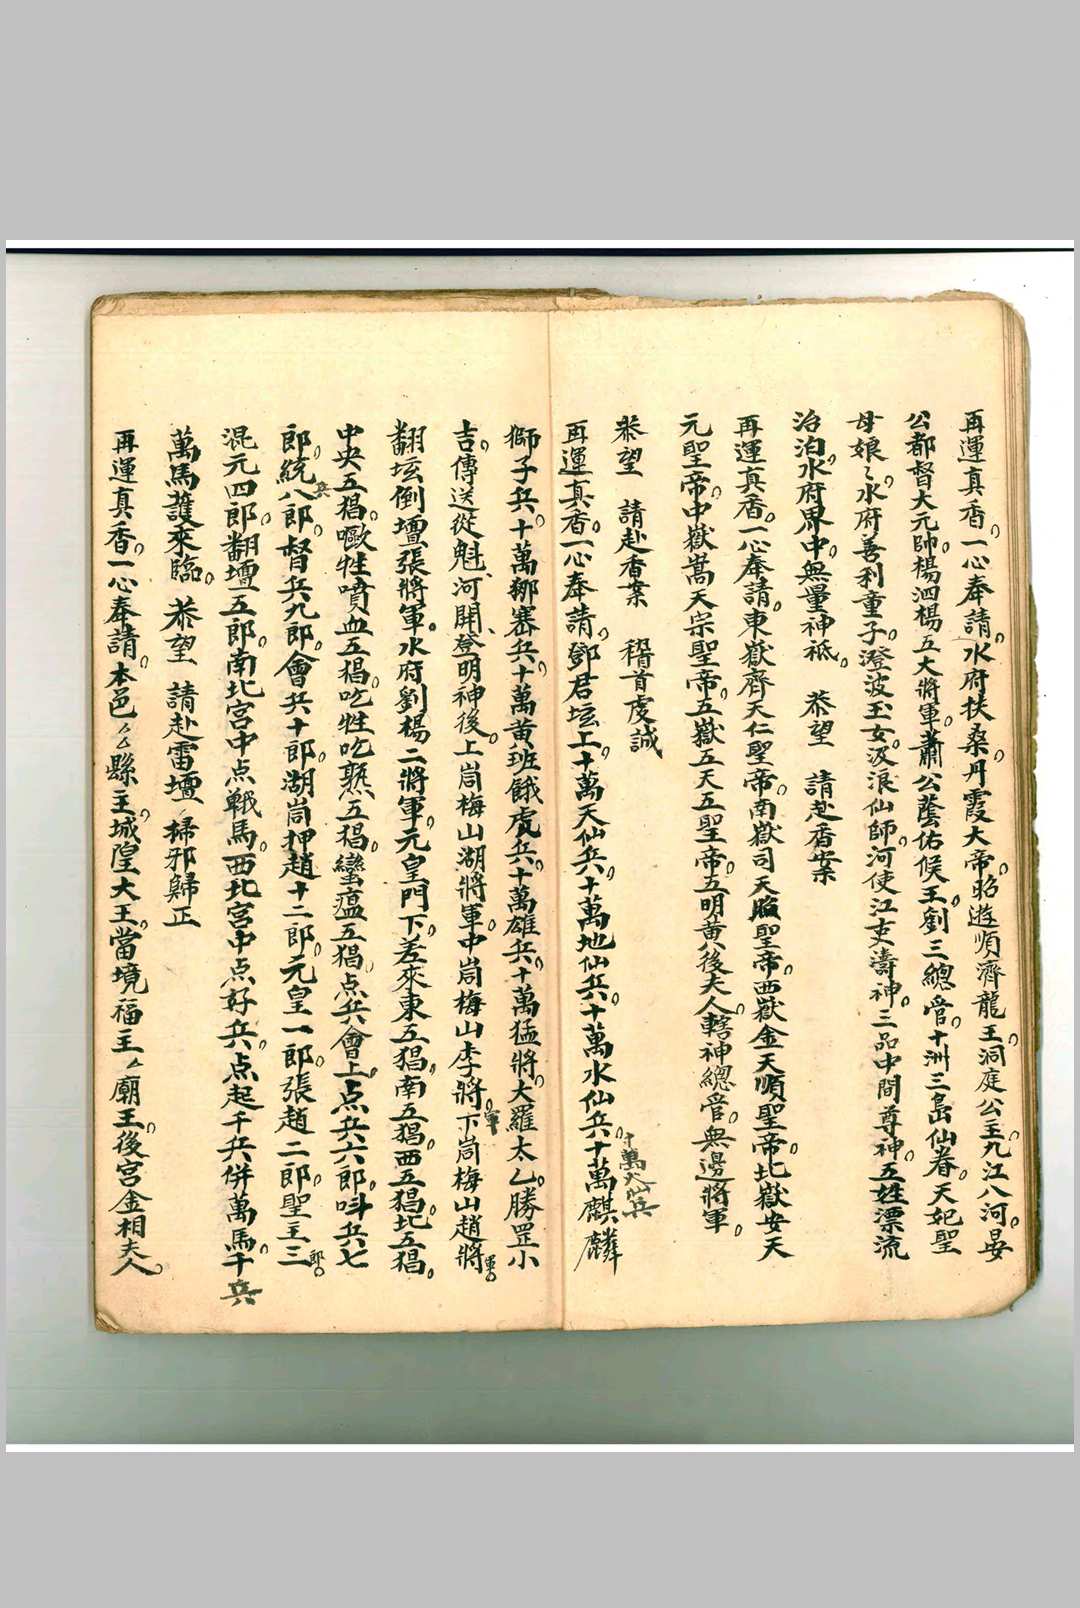 再運真香。一心奉請。水府扶桑丹霞大帝。昭遊順濟龍王。洞庭公主。九江八河。晏
公都督大元帥。楊泗楊五大將軍。蕭公蔭佑侯王。劉三總管。十洲三島仙眷。天妃聖
母娘〻。水府善利童子。澄波玉女。汲浪仙師。河使江吏濤神。三品中間尊神。五姓漂流
治泊。水府界中。無量神祇。 恭望 請赴香案
再運真香。一心奉請。東嶽齊天仁聖帝。南嶽司天㬌聖帝。西嶽金天順聖帝。北嶽安天
元聖帝。中嶽嵩天宗聖帝。五嶽五天五聖帝。五明黄後夫人。轄神總管。無邊將軍。
恭望 請赴香案 稽首虔誠
再運真香。一心奉請。鄧君坛上。十萬天仙兵。十萬地仙兵。十萬水仙兵。十萬火仙兵 十萬麒麟
獅子兵。十萬 兵。十萬黄班餓虎兵。十萬雄兵。十萬猛將。大羅太乙。勝罡小
吉。傳送從魁、河開、登明神後。上峝梅山湖將軍。中峝梅山李將軍。下峝梅山趙將軍。
翻坛倒壇張將軍。水府劉楊二將軍。元皇門下。差來東五猖。南五猖。西五猖。北五猖。
中央五猖。嘔牲噴血五猖。吃牲吃熟五猖。蠻瘟五猖。点兵會上。点兵六郎。呌兵七
郎。統兵八郎。督兵九郎。會兵十郎。湖峝押趙十二郎。元皇一郎。張趙二郎。聖主三郎。
混元四郎。翻壇五郎。南北宫中点戰馬。西北宫中点好兵。点起千兵併萬馬。千兵
萬馬護來臨。恭望 請赴雷壇 掃邪歸正
再運真香。一心奉請。本邑厶縣主。城隍大王。當境福主。厶廟王。後宫金相夫人。